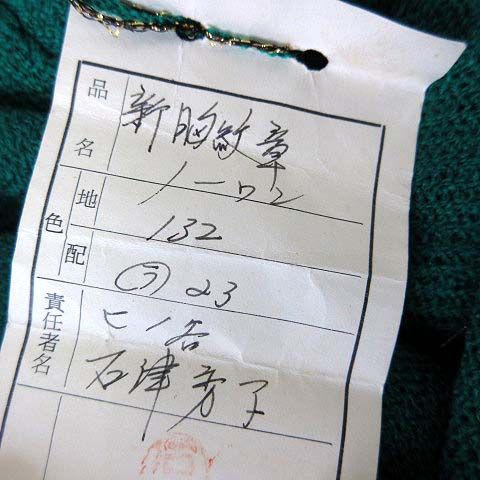 品名 新胸紋章
ノーワン
色 地 132
配 ㋶ 23
責任者名 ヒノ谷
石津芳子